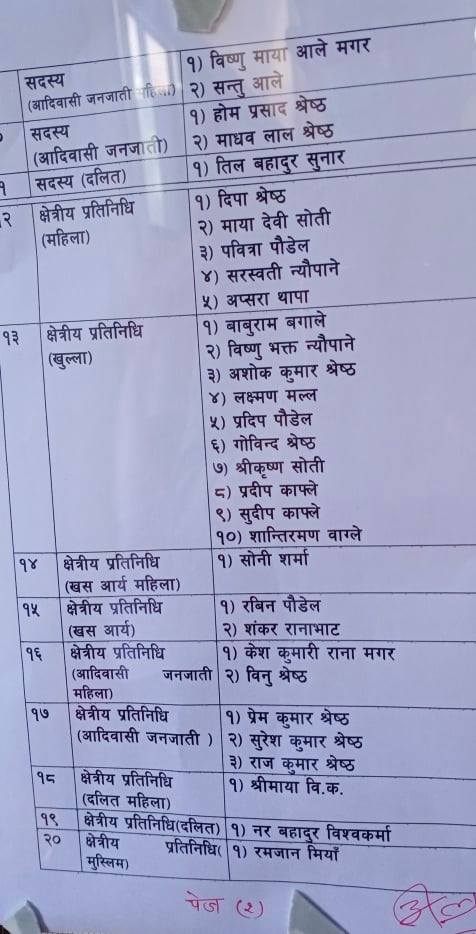 सदस्य १) विष्णु माया आले मगर
(आदिवासी जनजाती महिला) २) सन्तु आले
सदस्य १) होम प्रसाद श्रेष्ठ
(आदिवासी जनजाती) २) माधव लाल श्रेष्ठ
१ सदस्य (दलित) १) तिल बहादुर सुनार
२ क्षेत्रीय प्रतिनिधि १) दिपा श्रेष्ठ
(महिला) २) माया देवी सोती
३) पवित्रा पौडेल
४) सरस्वती न्यौपाने
५) अप्सरा थापा
१३ क्षेत्रीय प्रतिनिधि १) बाबुराम बगाले
(खुल्ला) २) विष्णु भक्त न्यौपाने
३) अशोक कुमार श्रेष्ठ
४) लक्ष्मण मल्ल
५) प्रदिप पौडेल
६) गोविन्द श्रेष्ठ
७) श्रीकृष्ण सोती
८) प्रदीप काफ्ले
९) सुदीप काफ्ले
१०) शान्तिरमण वाग्ले
१४ क्षेत्रीय प्रतिनिधि १) सोनी शर्मा
(खस आर्य महिला)
१५ क्षेत्रीय प्रतिनिधि १) रबिन पौडेल
(खस आर्य) २) शंकर रानाभाट
१६ क्षेत्रीय प्रतिनिधि १) केश कुमारी राना मगर
(आदिवासी जनजाती २) विनु श्रेष्ठ
महिला)
१७ क्षेत्रीय प्रतिनिधि १) प्रेम कुमार श्रेष्ठ
(आदिवासी जनजाती ) २) सुरेश कुमार श्रेष्ठ
३) राज कुमार श्रेष्ठ
१८ क्षेत्रीय प्रतिनिधि १) श्रीमाया वि.क.
(दलित महिला)
१९ क्षेत्रीय प्रतिनिधि(दलित) १) नर बहादुर विश्वकर्मा
२० क्षेत्रीय प्रतिनिधि( १) रमजान मियाँ
मुस्लिम)
पेज (२)